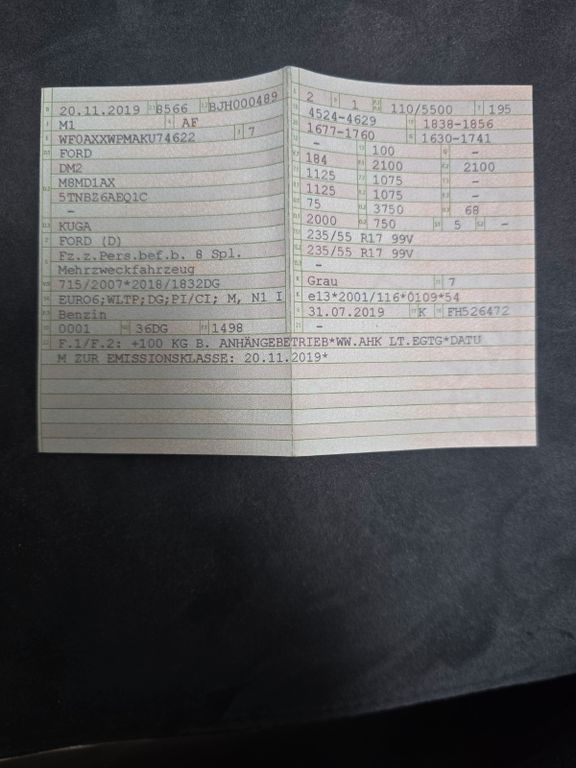 20.11.2019 8566 BJH000489
M1 AF
WF0AXXWPMAKU74622 7
FORD
DM2
M8MD1AX
5TNBZ6AEQ1C
–
KUGA
FORD (D)
Fz.z.Pers.bef.b. 8 Spl.
Mehrzweckfahrzeug
715/2007*2018/1832DG
EURO6;WLTP;DG;PI/CI; M, N1 I
Benzin
0001 36DG 1498
2 1 110/5500 195
4524-4629 1838-1856
1677-1760 1630-1741
– 100 –
184 2100 2100
1125 1075
1125 1075
75 3750 68
2000 750 5 –
235/55 R17 99V
235/55 R17 99V
–
Grau 7
e13*2001/116*0109*54
31.07.2019 K FH526472
–
F.1/F.2: +100 KG B. ANHÄNGEBETRIEB*WW.AHK LT.EGTG*DATU
M ZUR EMISSIONSKLASSE: 20.11.2019*